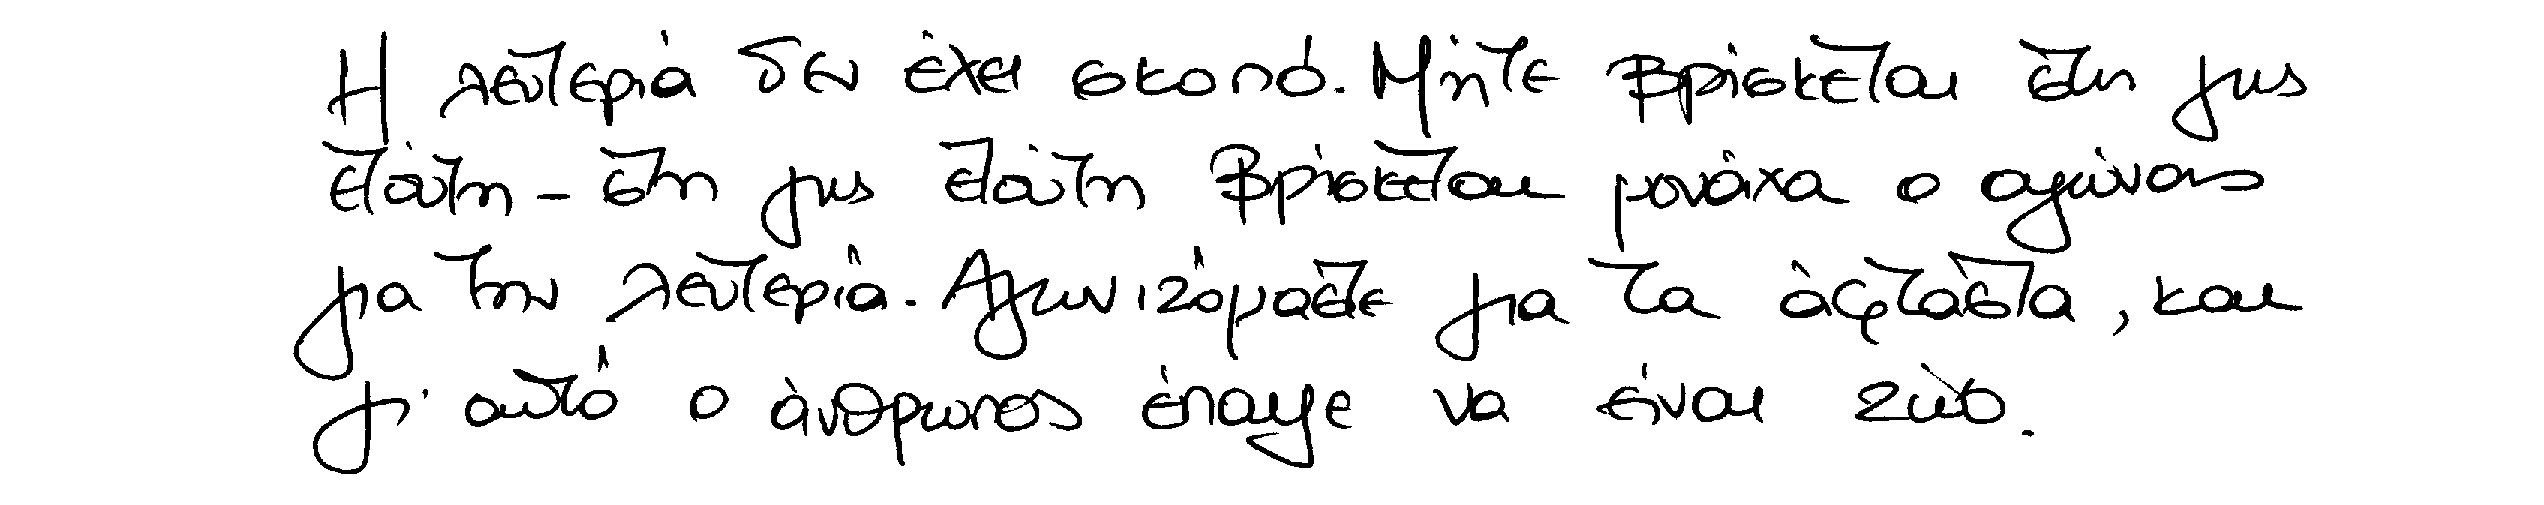 Η λευτεριά δεν έχει σκοπό. Μήτε βρίσκεται στη γης
ετούτη - στη γης ετούτη βρίσκεται μονάχα ο αγώνας
για την λευτεριά. Αγωνιζόμαστε για τα άφταστα, και
γι' αυτό ο άνθρωπος έπαψε να είναι ζώο.